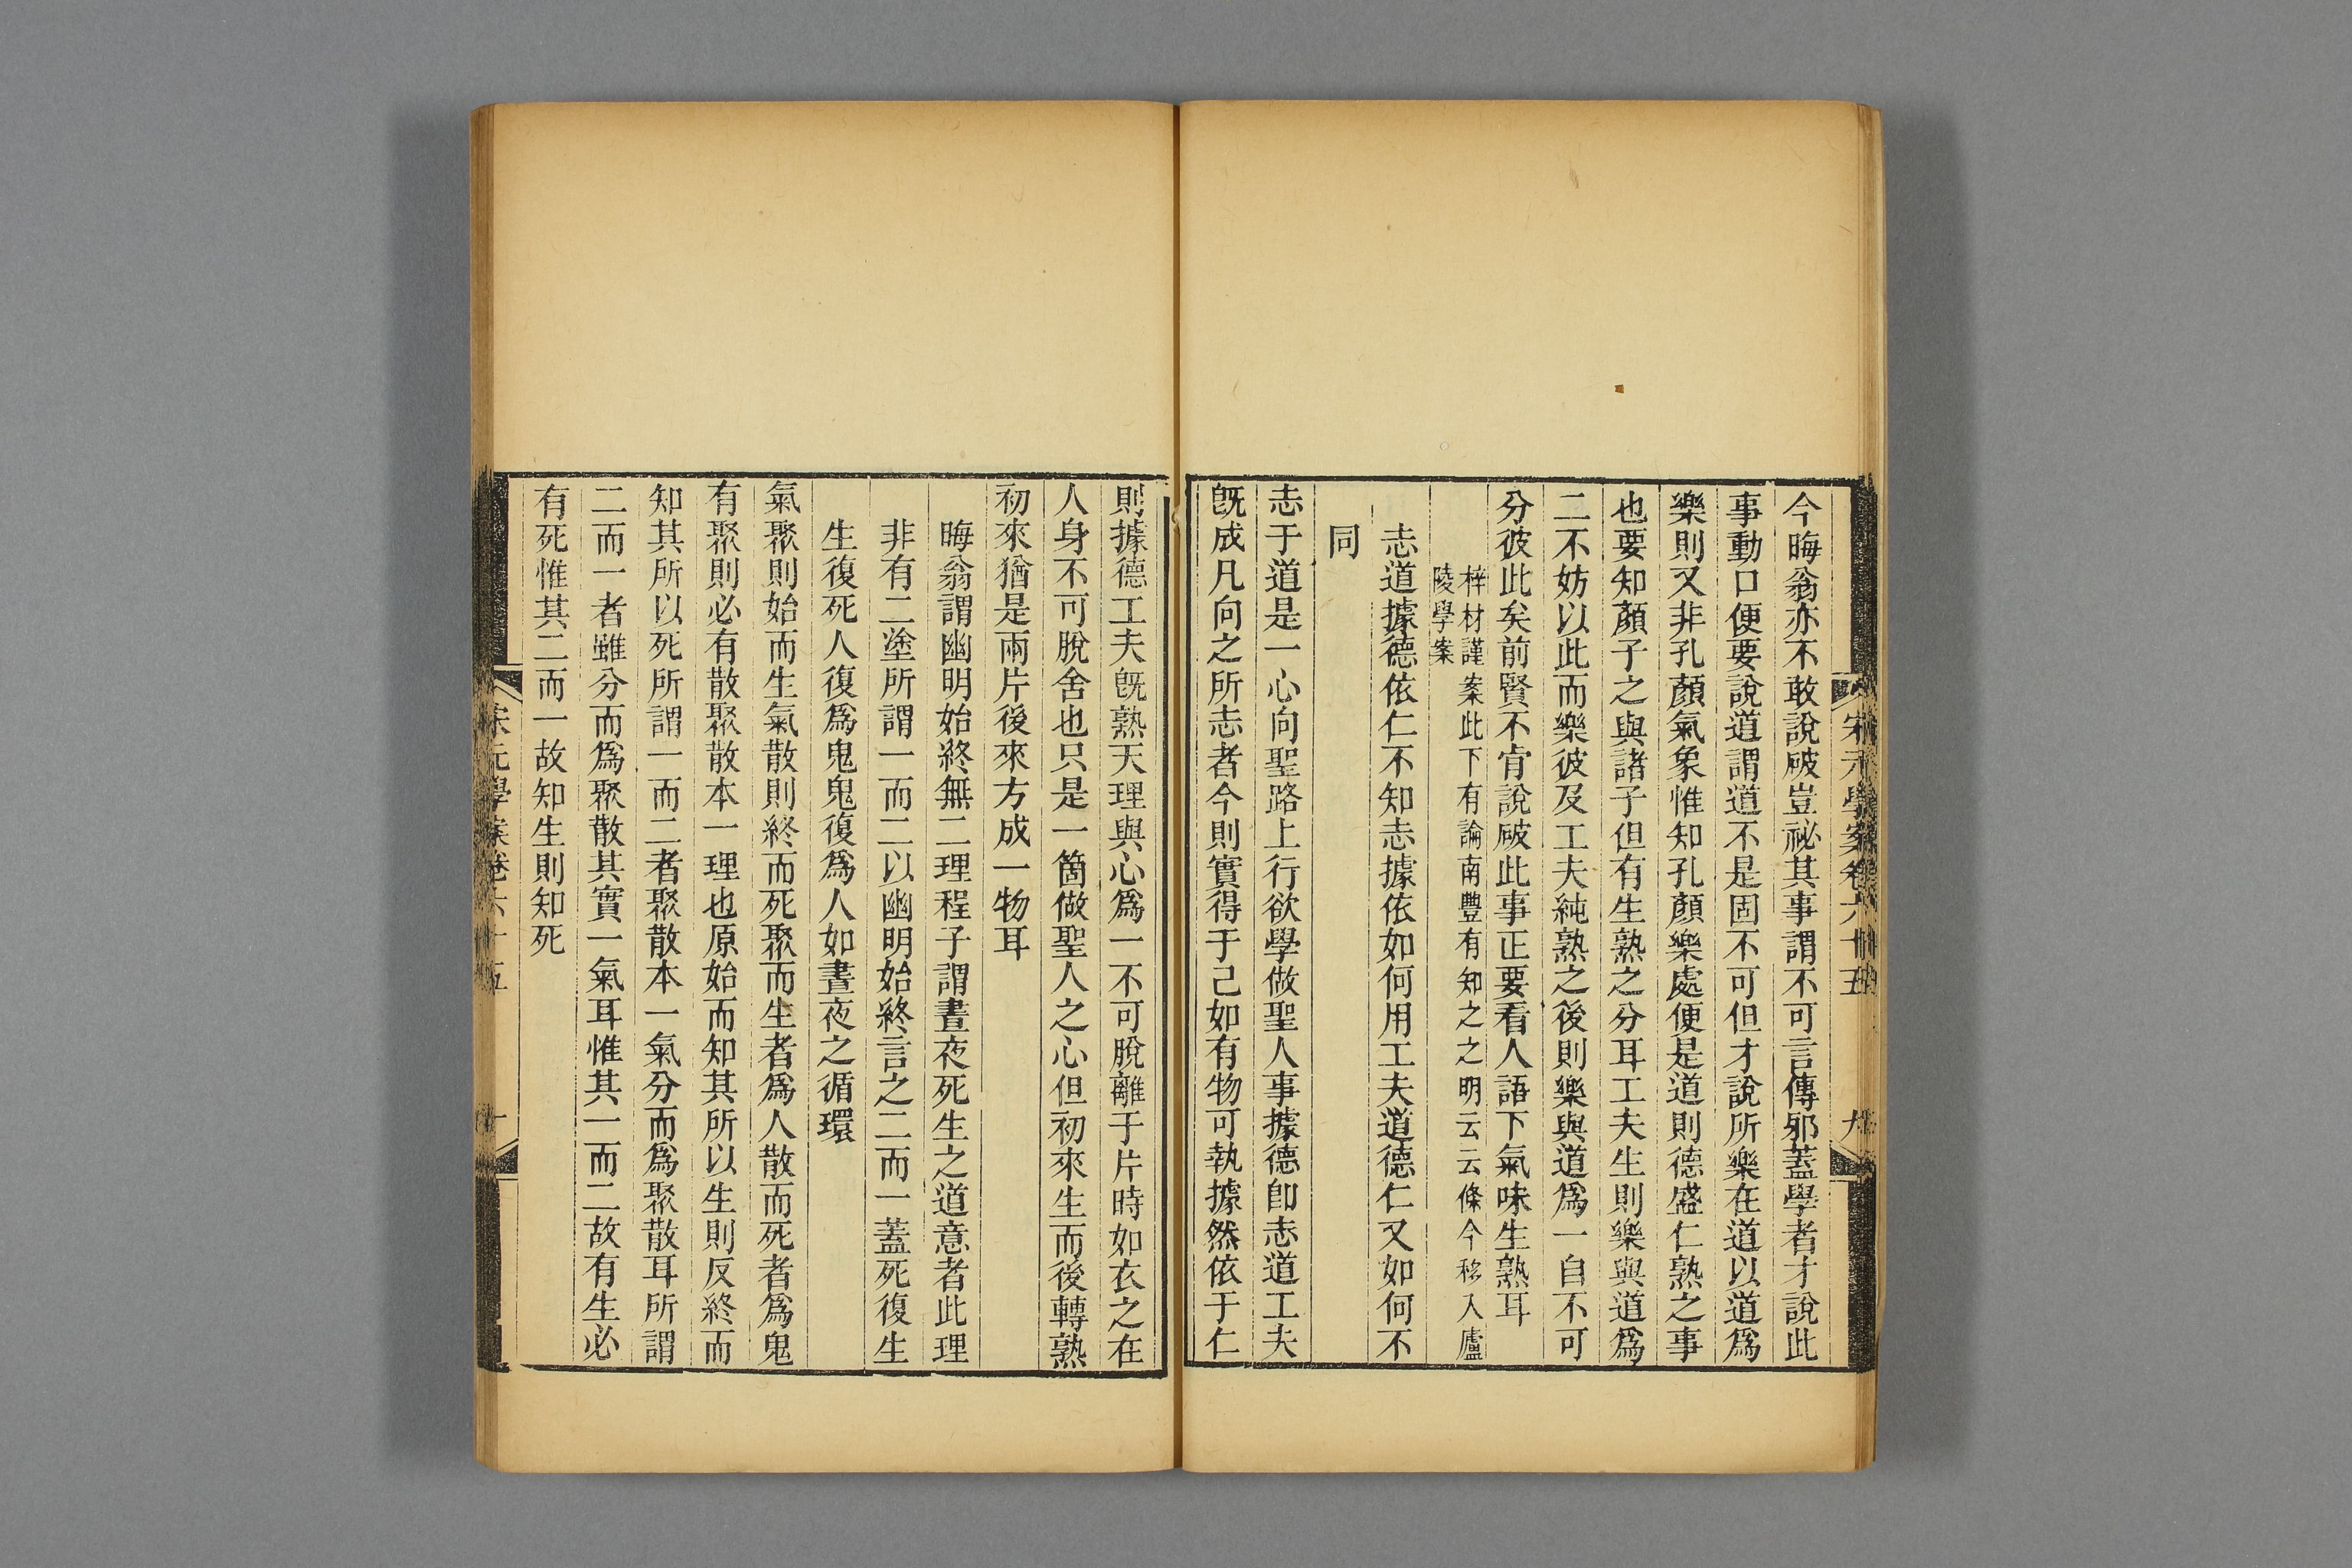 宋元學案卷六十五
九
今晦翁亦不敢說破豈祕其事謂不可言傳邪蓋學者才說此
事動口便要說道謂道不是固不可但才說所樂在道以道爲
樂則又非孔顏氣象惟知孔顏樂處便是道則德盛仁熟之事
也要知顏子之與諸子但有生熟之分耳工夫生則樂與道爲
二不妨以此而樂彼及工夫純熟之後則樂與道爲一自不可
分彼此矣前賢不肯說破此事正要看人語下氣味生熟耳
梓材謹案此下有論南豐有知之之明云云條今移入廬
陵學案
志道據德依仁不知志據依如何用工夫道德仁又如何不
同
志于道是一心向聖路上行欲學做聖人事據德卽志道工夫
旣成凡向之所志者今則實得于己如有物可執據然依于仁
則據德工夫旣熟天理與心爲一不可脫離于片時如衣之在
人身不可脫舍也只是一箇做聖人之心但初來生而後轉熟
初來猶是兩片後來方成一物耳
晦翁謂幽明始終無二理程子謂晝夜死生之道意者此理
非有二塗所謂一而二以幽明始終言之二而一蓋死復生
生復死人復爲鬼鬼復爲人如晝夜之循環
氣聚則始而生氣散則終而死聚而生者爲人散而死者爲鬼
有聚則必有散聚散本一理也原始而知其所以生則反終而
知其所以死所謂一而二者聚散本一氣分而爲聚散耳所謂
二而一者雖分而爲聚散其實一氣耳惟其一而二故有生必
有死惟其二而一故知生則知死
宋元學案卷六十五
十